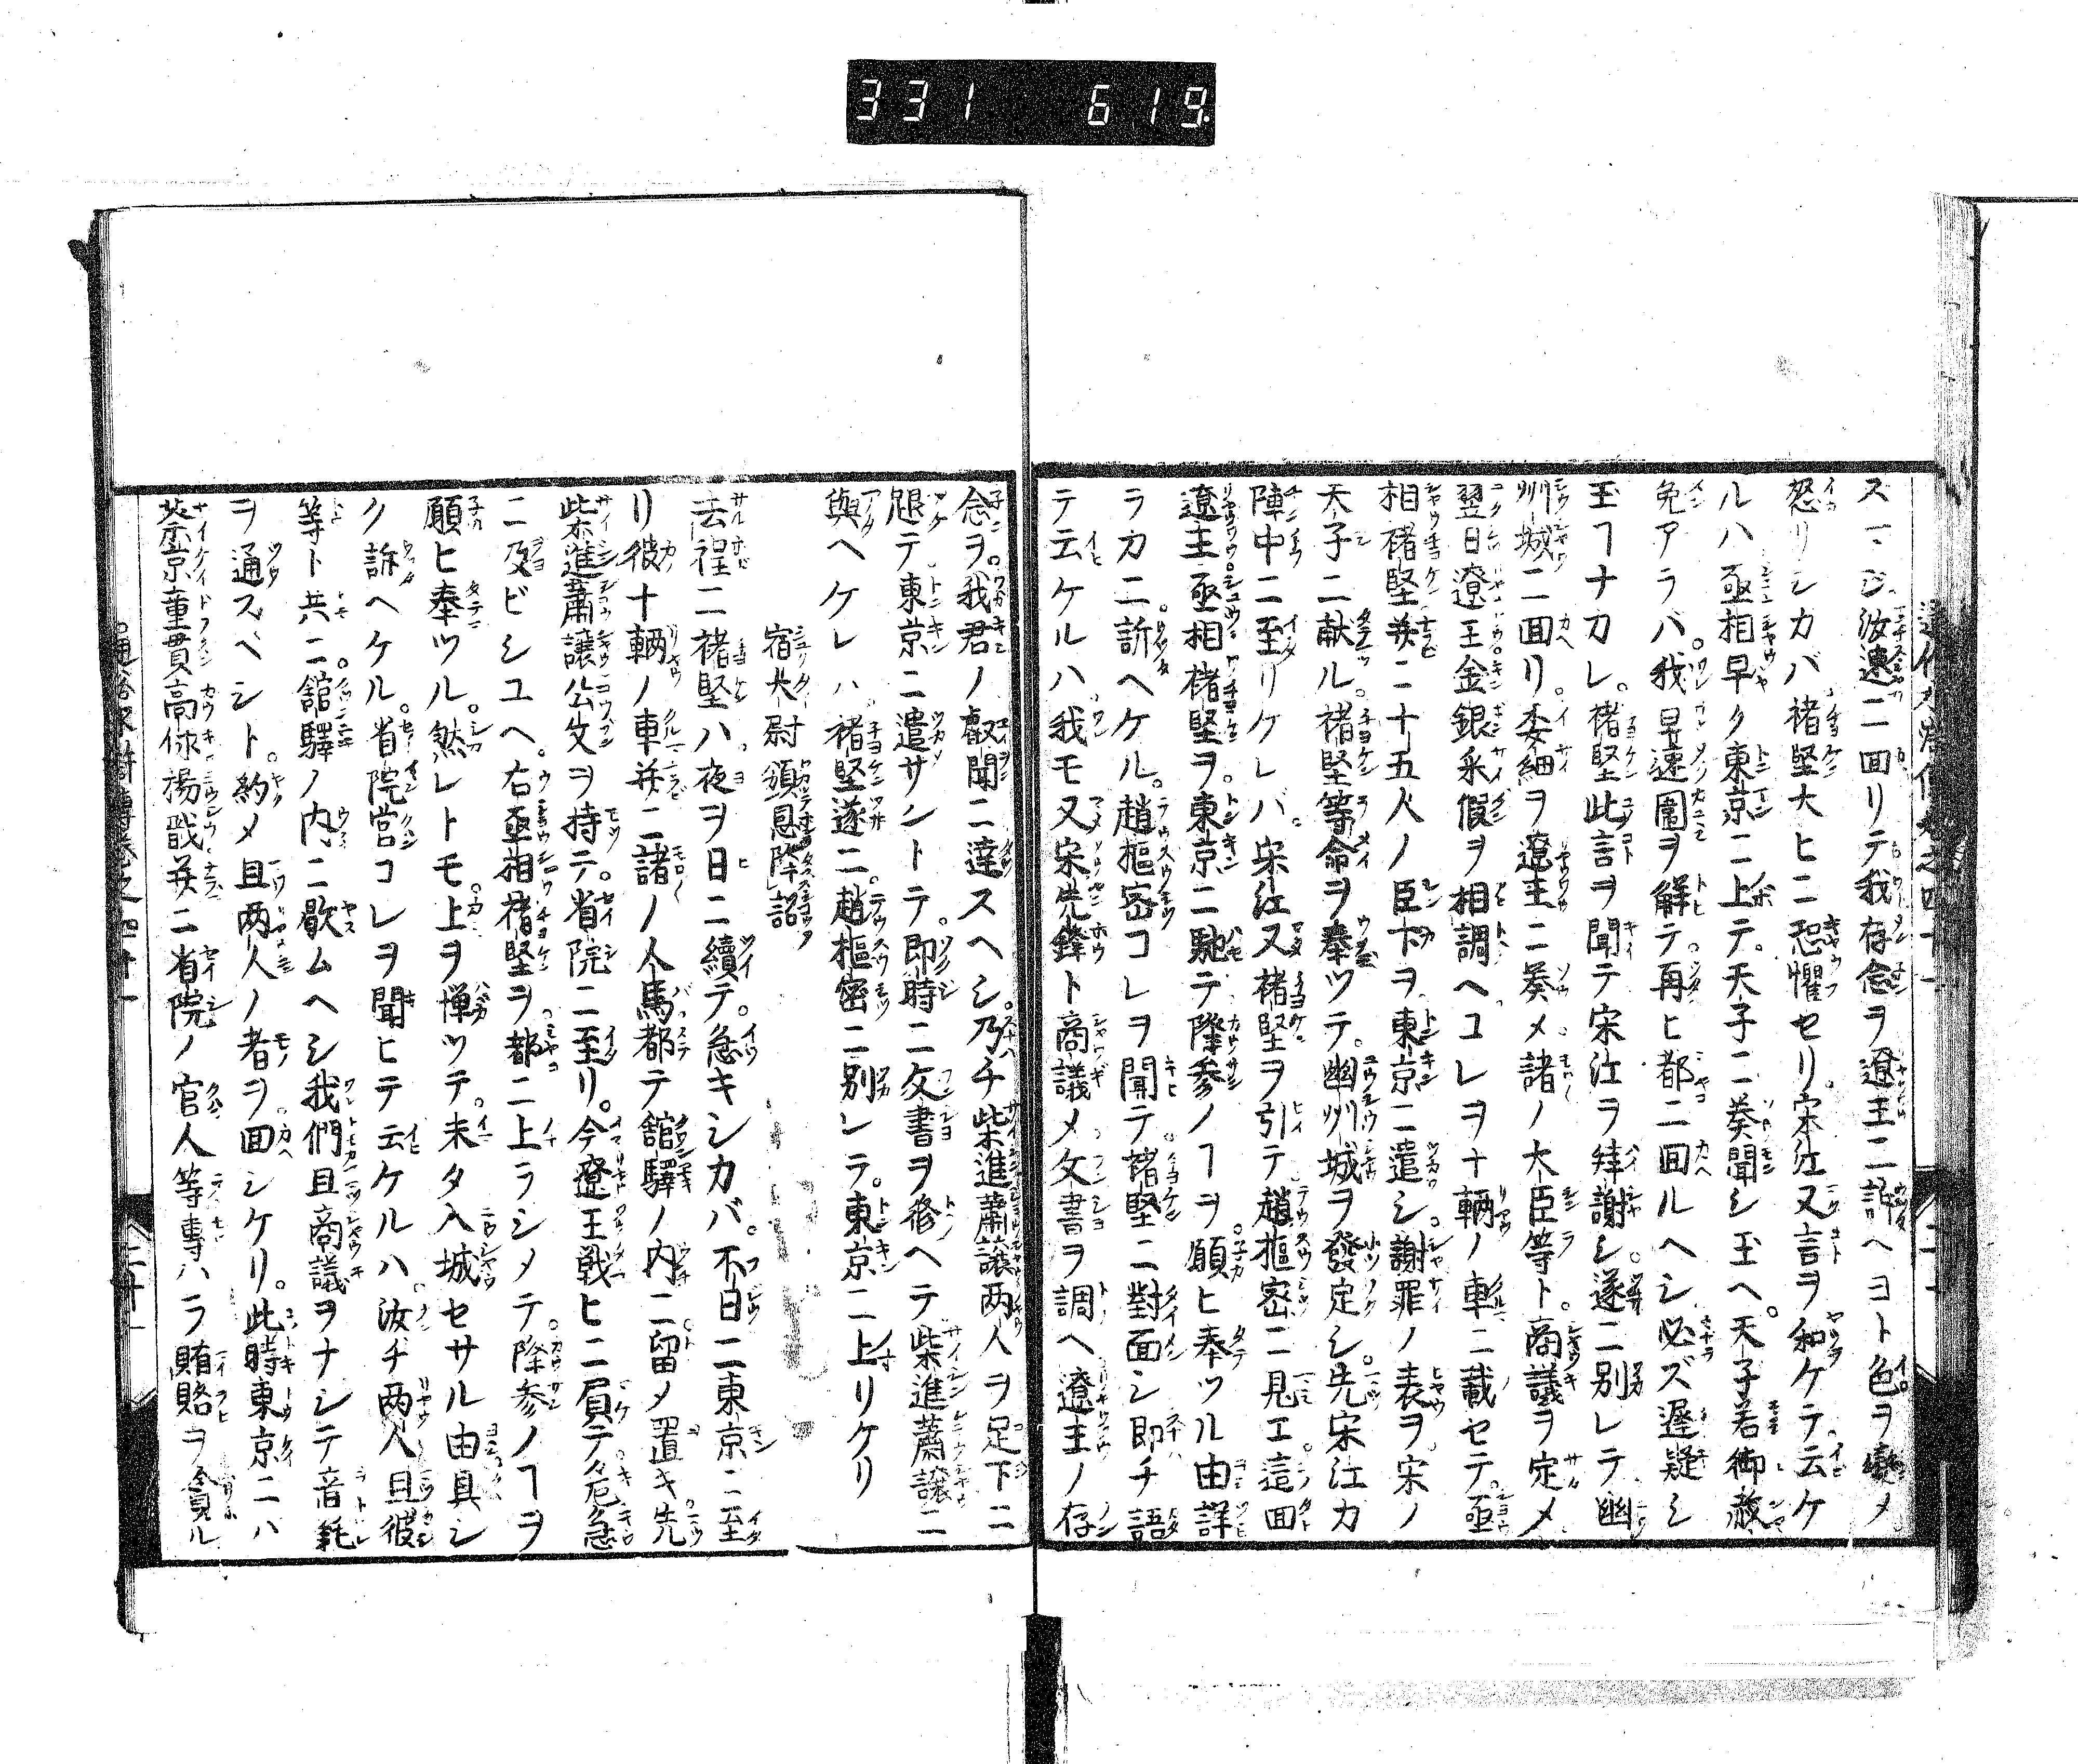 331 619
スマジ汝速ニ回リテ我存念ヲ遼王ニ訴ヘヨト色ヲ變メ
怒リシカバ褚堅大ヒニ恐懼セリ宋江又言ヲ和ケテ云ケ
ルハ亟相早ク東京ニ上テ。天子ニ奏聞シ玉ヘ。天子若御赦
免アラバ。我早速圍ヲ解テ。再ヒ都ニ回ルヘシ必ズ遲疑シ
玉フナカレ。褚堅此言ヲ聞テ宋江ヲ拜謝シ。遂ニ別レテ幽
州城ニ回リ。委細ヲ遼王ニ奏メ諸ノ大臣等ト。商議ヲ定メ
翌日遼王金銀采假ヲ相調ヘコレヲ十輌ノ車ニ載セテ。亟
相褚堅并ニ十五人ノ臣下ヲ東京ニ遣シ。謝罪ノ表ヲ宋ノ
天子ニ献ル。褚堅等命ヲ奉ツテ。幽州城ヲ發定シ。先宋江カ
陣中ニ至リケレバ。宋江又褚堅ヲ引テ趙樞密ニ見エ這回
遼主亟相褚堅ヲ。東京ニ馳テ降参ノヿヲ。願ヒ奉ツル由詳
ラカニ訴ヘケル。趙樞密コレヲ聞テ褚堅ニ對面シ即チ語
テ云ケルハ我モ又宋先鋒ト商議メ文書ヲ調ヘ遼主ノ存
念ヲ。我君ノ叡聞ニ達スヘシ。乃チ柴進蕭讓两人ヲ足下ニ
随テ東京ニ遣サントテ。即時ニ文書ヲ修ヘテ柴進蕭讓ニ
與ヘケレハ。褚堅遂ニ。趙樞密ニ別レテ。東京ニ上リケリ
宿太尉頒恩降詔
去程ニ褚堅ハ夜ヲ日ニ續テ。急キシカバ。不日ニ東京ニ至
リ彼十輌ノ車并ニ諸ノ人馬都テ舘驛ノ内ニ留メ置キ先
柴進蕭讓公文ヲ持テ。省院ニ至リ。今遼王戦ヒニ負テ危急
ニ及ビシユヘ。右亟相褚堅ヲ都ニ上ラシメテ。降参ノヿヲ
願ヒ奉ツル。然レトモ。上ヲ憚ツテ。未タ入城セサル由具シ
ク訴ヘケル。省院官コレヲ聞ヒテ云ケルハ。汝チ两人且彼
等ト共ニ。舘驛ノ内ニ歇ムヘシ我們且商議ヲナシテ音耗
ヲ通スベシト。約メ且两人ノ者ヲ回シケリ。此時東京ニハ
蔡京童貫高俅楊戩并ニ省院ノ官人等專ハラ賄賂ヲ貪ル